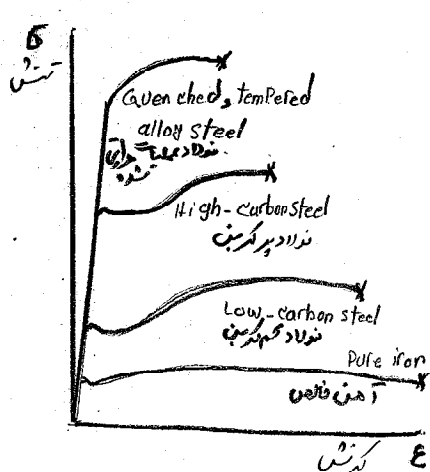 σ
تنش
Quenched, tempered
alloy steel
فولاد عملیات حرارتی
شده
High-carbon steel
فولاد پر کربن
Low-carbon steel
فولاد کم کربن
Pure iron
آهن خالص
کرنش
ε